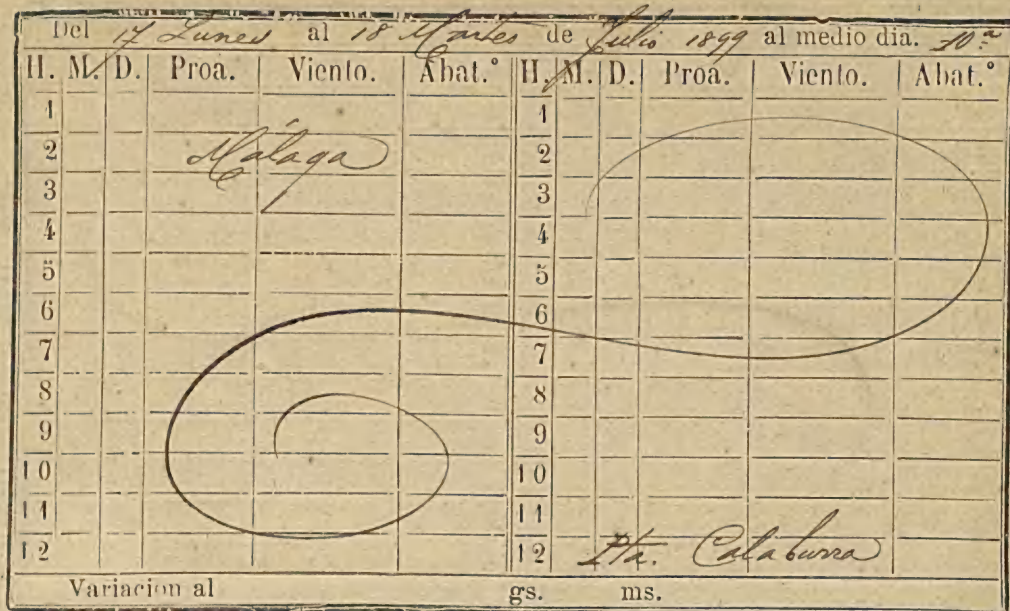 Del 17 Lunes al 18 Martes de Julio 1899 al medio dia. 10ª
H. M. D. Proa. Viento. Abat.º H. M. D. Proa. Viento. Abat.º
1 1
2 Málaga 2
3 3
4 4
5 5
6 6
7 7
8 8
9 9
10 10
11 11
12 12 Pta. Calaburra
Variacion al gs. ms.